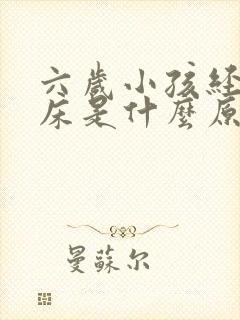 六歲小孩經
床是什麼原
曼蘇尔